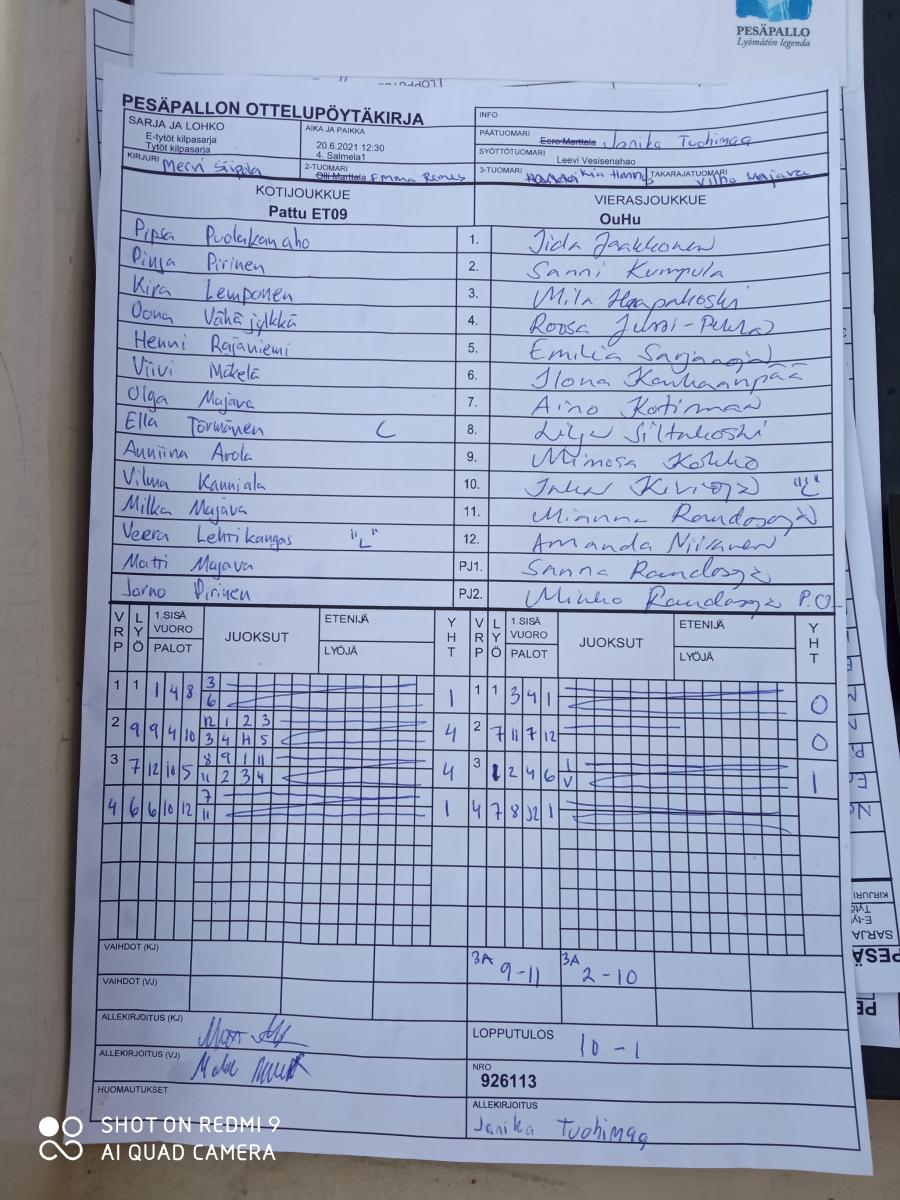 PESÄPALLO
Lyömätön legenda
PESÄPALLON OTTELUPÖYTÄKIRJA
INFO
SARJA JA LOHKO
E-tytöt kilpasarja
Tytöt kilpasarja
AIKA JA PAIKKA
20.6.2021 12:30
4. Salmela1
PÄÄTUOMARI Eero Marttala Janika Tuohimaa
SYÖTTÖTUOMARI Leevi Vesisenaho
KIRJURI Mervi
2-TUOMARI Olli Marttala Emma Remes
3-TUOMARI Kia Hannus
TAKARAJATUOMARI Vilho Majava
KOTIJOUKKUE
Pattu ET09
VIERASJOUKKUE
OuHu
Pipsa Puolakanaho 1. Iida Jaakkonen
Pinja Pirinen 2. Sanni Kumpula
Kira Lemponen 3. Mila Haapakoski
Oona Vähäjylkkä 4. Roosa Jussi-Pekka
Henni Rajaniemi 5. Emilia Sarjanoja
Viivi Mäkelä 6. Ilona Kauhaanpää
Olga Majava 7. Aino Kotimaa
Ella Törmänen C 8. Lilja Siltakoski
Anniina Arola 9. Mimosa Kokko
Vilma Kanniala 10. Kivioja "L"
Milka Majava 11. Minna Raudasoja
Veera Lehtikangas "L" 12. Amanda Niiranen
Matti Majava PJ1. Sanna Raudasoja
Jarno Pirinen PJ2. Minko Raudasoja P.O
VRP LYÖ 1.SISÄ VUORO PALOT JUOKSUT ETENIJÄ LYÖJÄ YHT VRP LYÖ 1.SISÄ VUORO PALOT JUOKSUT ETENIJÄ LYÖJÄ YHT
1 1 1 4 8 3 1 1 1 3 4 1 0
6
2 9 9 4 10 12 1 2 3 4 2 7 11 7 12 0
3 4 11 5
3 7 12 10 5 8 9 1 11 4 3 1 2 4 6 1 1
11 2 3 4 V
4 6 6 10 12 7 1 4 7 8 12 1
11
VAIHDOT (KJ) 3A 9-11 3A 2-10
VAIHDOT (VJ)
ALLEKIRJOITUS (KJ)
LOPPUTULOS 10-1
ALLEKIRJOITUS (VJ)
NRO
926113
HUOMAUTUKSET
ALLEKIRJOITUS
Janika Tuohimaa
SHOT ON REDMI 9
AI QUAD CAMERA